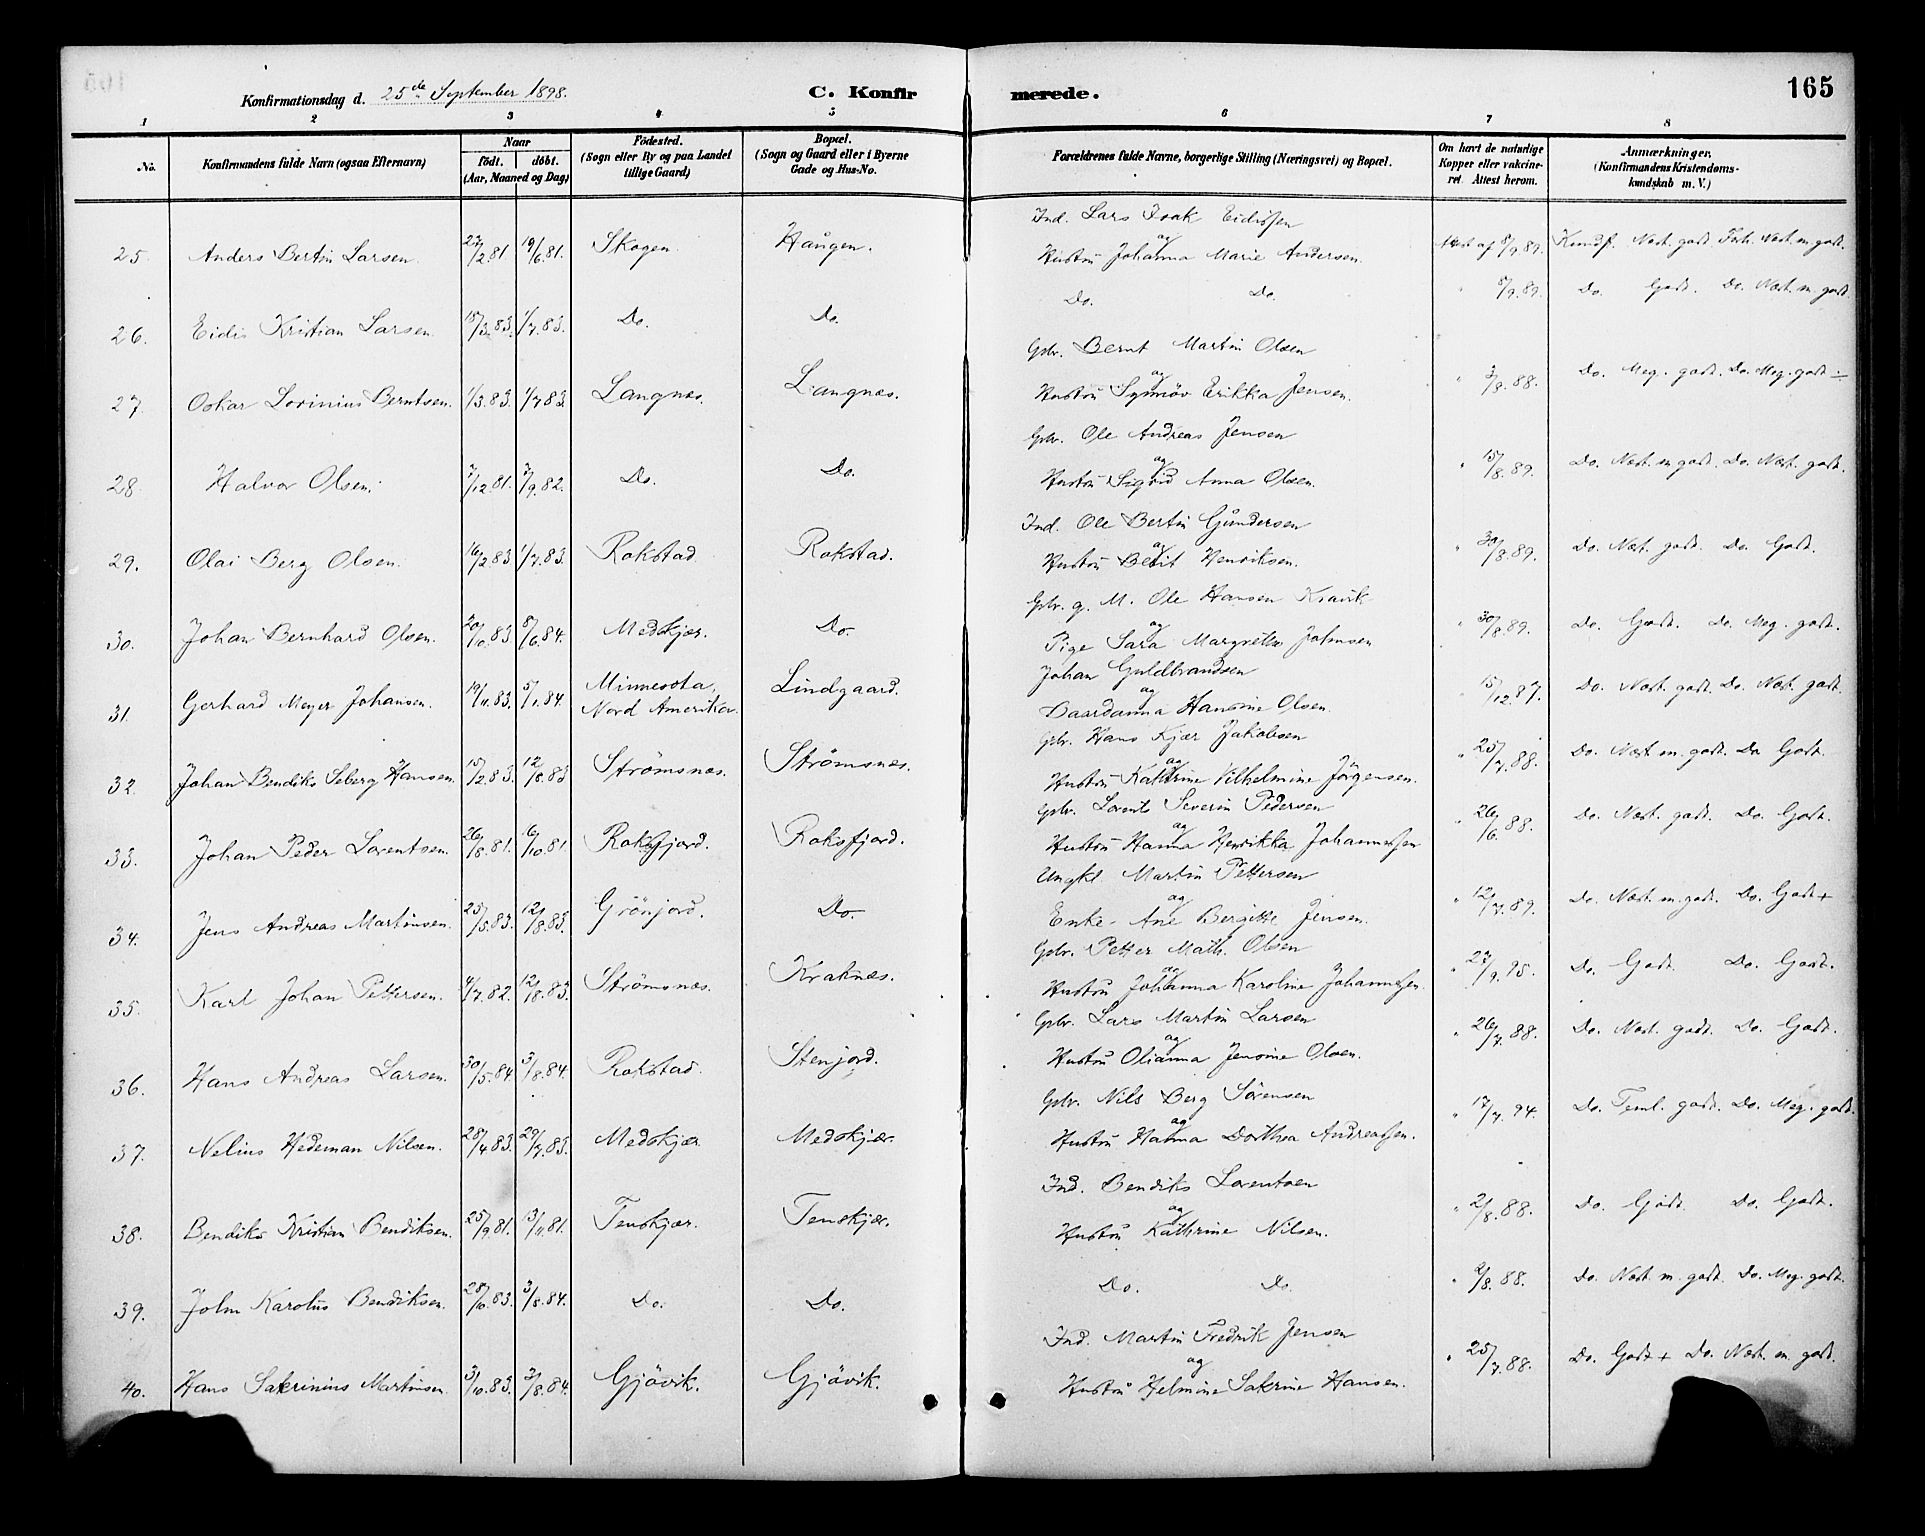 165
Konfirmationsdag d. 25de September 1898. C. Konfirmerede.
1 2 3 4 5 6 7 8
No. Konfirmandens fulde Navn (ogsaa Efternavn) Naar født. døbt. (Aar, Maaned og Dag) Fødested. (Sogn eller By og paa Landet tillige Gaard) Bopæl. (Sogn og Gaard eller i Byerne Gade og Hus-No.) Forældrenes fulde Navne, borgerlige Stilling (Næringsvei) og Bopæl. Om havt de naturlige Kopper eller vakcineret. Attest herom. Anmærkninger. (Konfirmandens Kristendomskundskab m. V.)
Ind. Lars Isak Eidissen
25. Anders Bertin Larsen. 27/2.81. 19/6.81. Skogen. Haugen. og Hustru Johanna Marie Andersen. Attest af 8/9.89. Kundsk. Næst. godt. Forh. Næst. m. godt.
26. Eidis Kristian Larsen. 18/3.83. 1/7.83. Do. Do. Do. Do. " 8/9.89. Do. Godt. Do. Næst. m. godt.
Gbr. Bernt Martin Olsen
27. Oskar Lorinius Berntsen. 1/3.83. 1/7.83. Langnes. Langnes. og Hustru Synnöv Erikka Jensen. " 3/8.88. Do. Meg. godt. Do. Meg. godt ÷
Gbr. Ole Andreas Jensen
28. Halvor Olsen. 7/12.81. 3/9.82. Do. Do. og Hustru Sigrid Anna Olsen. " 15/8.89. Do. Næst. m. godt. Do. Næst. godt.
Ind. Ole Bertin Gundersen
29. Olai Berg Olsen. 16/2.83 1/7.83. Rokstad Rokstad. og Hustru Berit Henriksen. " 30/8.89. Do. Næst. godt. Do. Godt.
Gbr. g. M. Ole Hansen Kravik
30. Johan Bernhard Olsen. 20/10.83 8/6.84. Medskjær. Do. og Pige Sara Margrethe Johnsen " 30/8.89. Do. Godt. Do. Meg. godt.
Johan Guldbrandsen
31. Gerhard Meyer Johansen. 19/11.83. 5/1.84. Minnesota, Nord Amerika. Lindgaard. og Daardanna Hansine Olsen. " 15/12.87. Do. Næst. godt. Do. Næst. godt.
Gbr. Hans Kjær Jakobsen
32. Johan Bendiks Seberg Hansen. 15/2.83. 12/8.83 Strömsnes. Strömsnes. og Hustru Kathrine Vilhelmine Jörgensen. " 25/7.88. Do. Næst. m. godt. Do Godt.
Gbr. Lorents Severin Pedersen
33. Johan Peder Lorentsen. 26/8.81. 16/10.81 Roksfjord. Roksfjord. og Hustru Hanna Henrikka Johannessen " 26/6.88. Do. Næst. godt. Do. Godt.
Ungkl. Martin Pettersen
34. Jens Andreas Martinsen. 25/5.83. 12/8.83. Grönjord. Do. og Enke Ane Bergitte Jensen. " 12/7.89. Do. Næst. m. godt. Do. Godt +
Gbr. Petter Math. Olsen
35. Karl Johan Pettersen. 4/7.82. 12/8.83. Strömsnes. Kraknes. og Hustru Johanna Karoline Johannessen. " 27/9.95. Do. Godt. Do. Godt.
Gbr. Lars Martin Larsen
36. Hans Andreas Larsen. 30/5.84. 3/8.84. Rokstad. Stenjord. og Hustru Olianna Jensine Olsen. " 26/7.88. Do. Næst. godt. Do. Godt.
Gbr. Nils Berg Sörensen
37. Nelius Hedeman Nilsen. 28/4.83. 29/7.83. Medskjær Medskjær. og Hustru Hanna Dorthea Andreassen. " 17/7.94. Do. Teml. godt. Do. Meg. godt.
Ind. Bendiks Lorentsen
38. Bendiks Kristian Bendiksen. 25/9.81. 13/11.81. Tenskjær. Tenskjær. og Hustru Kathrine Nilsen. " 2/8.88. Do. Godt. Do. Godt.
39. John Karolus Bendiksen. 28/10.83. 3/8.84. Do. Do. Do. Do. " 2/8.88. Do. Næst. m. godt. Do. Meg. godt.
Ind. Martin Fredrik Jensen
40. Hans Sakrinius Martinsen. 3/10.83. 3/8.84. Gjövik. Gjövik. og Hustru Helmine Sakrine Hansen. " 25/7.88. Do. Godt + Do. Næst. m. godt.